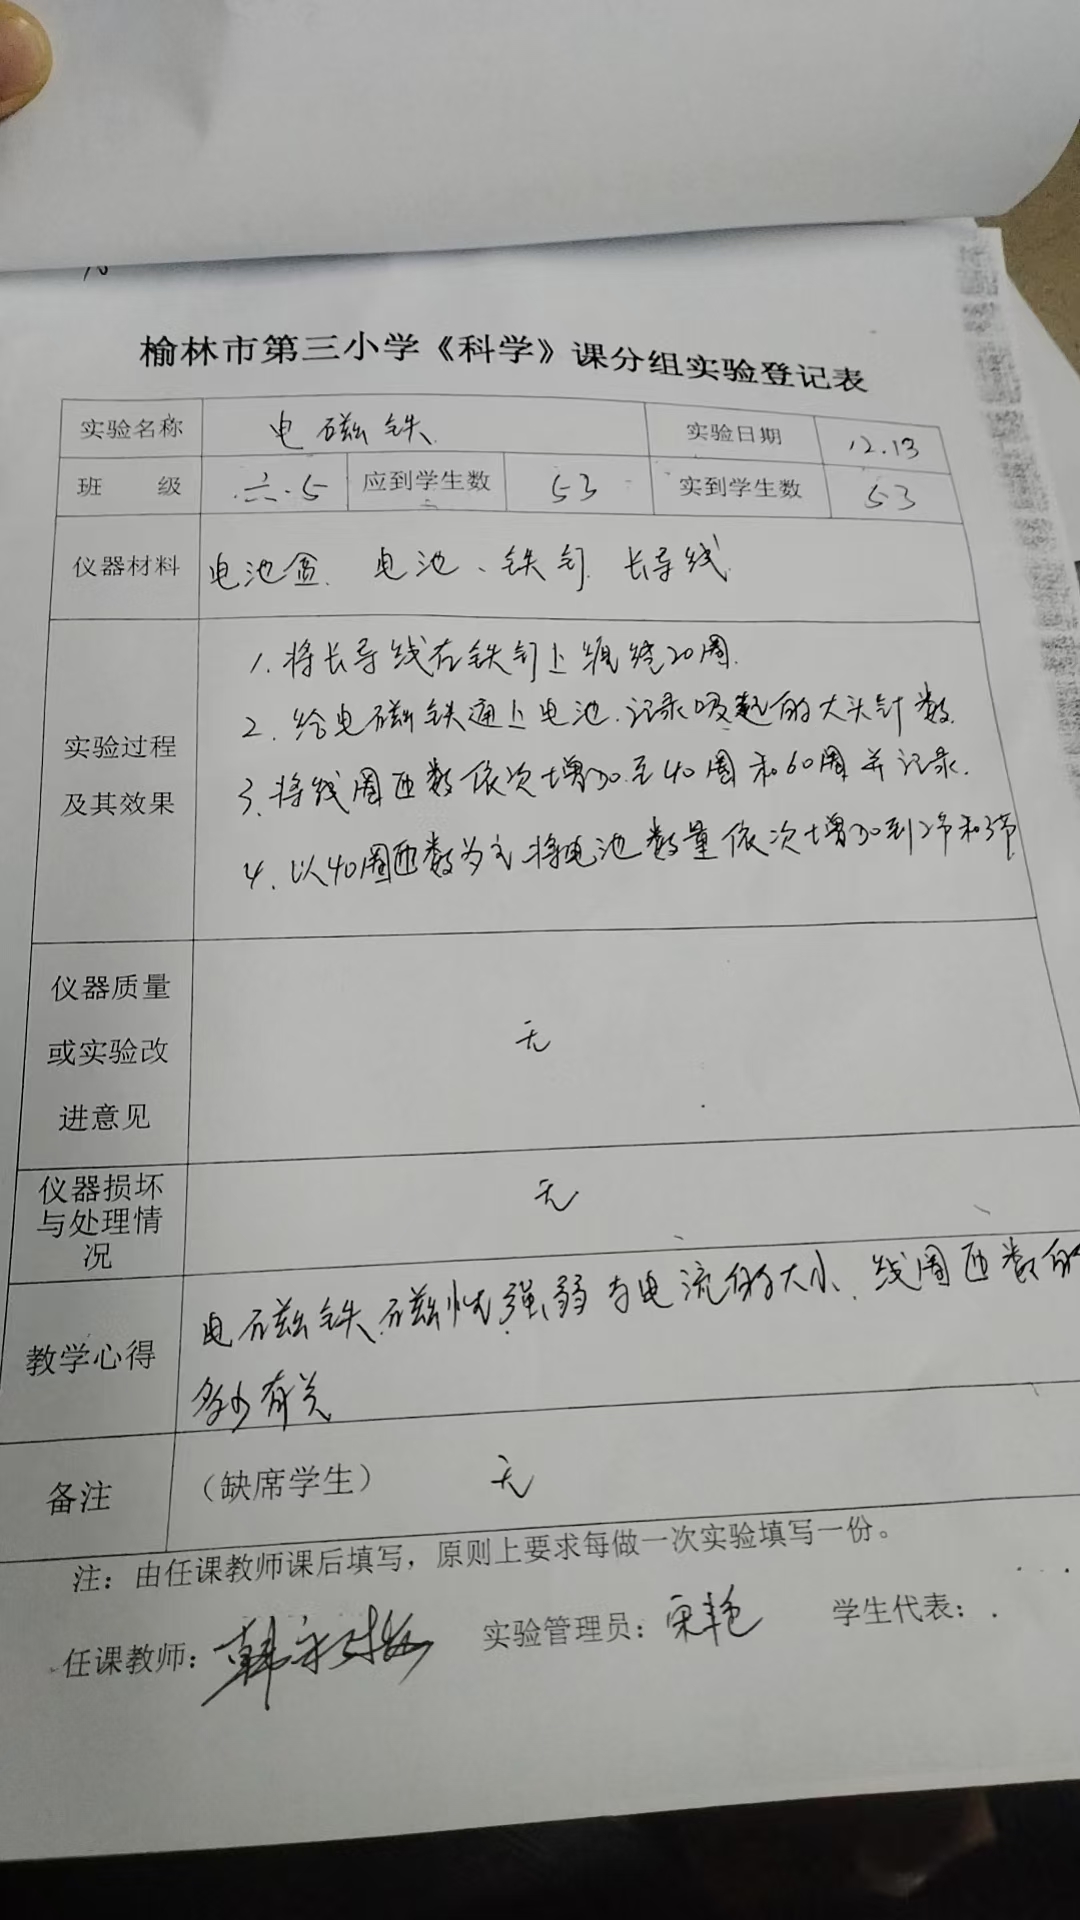 榆林市第三小学《科学》课分组实验登记表
实验名称 电磁铁 实验日期 12.13
班 级 六.5 应到学生数 53 实到学生数 53
仪器材料 电池盒、电池、铁钉、长导线
实验过程
及其效果
1.将长导线在铁钉上缠绕20圈.
2.给电磁铁通上电池.记录吸起的大头针数
3.将线圈匝数依次增加至40圈和60圈并记录.
4.以40圈匝数为主,将电池数量依次增加到2节和3节
仪器质量
或实验改
进意见
无
仪器损坏
与处理情
况
无
教学心得
电磁铁磁性强弱与电流的大小、线圈匝数的
多少有关
备注 (缺席学生) 无
注:由任课教师课后填写,原则上要求每做一次实验填写一份。
任课教师: 韩 实验管理员:宋艳 学生代表: